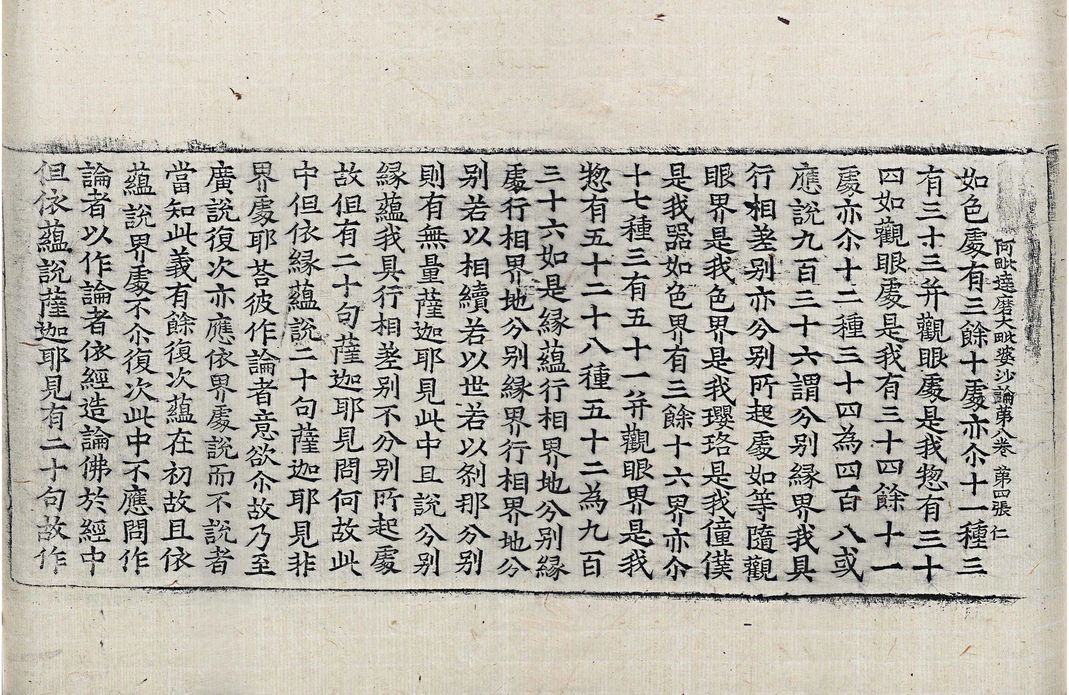 阿毗達磨大毗婆沙論第八卷 第四張 仁
如色處有三餘十處亦尒十一種三
有三十三并觀眼處是我惣有三十
四如觀眼處是我有三十四餘十一
處亦尒十二種三十四為四百八或
應說九百三十六謂分別緣界我具
行相差別亦分別所起處如等隨觀
眼界是我色界是我瓔珞是我僮僕
是我器如色界有三餘十六界亦尒
十七種三有五十一并觀眼界是我
惣有五十二十八種五十二為九百
三十六如是緣蘊行相界地分別緣
處行相界地分別緣界行相界地分
別若以相續若以世若以剎那分別
則有無量薩迦耶見此中且說分別
緣蘊我具行相差別不分別所起處
故但有二十句薩迦耶見問何故此
中但依緣蘊說二十句薩迦耶見非
界處耶荅彼作論者意欲尒故乃至
廣說復次亦應依界處說而不說者
當知此義有餘復次蘊在初故且依
蘊說界處不尒復次此中不應問作
論者以作論者依經造論佛於經中
但依蘊說薩迦耶見有二十句故作